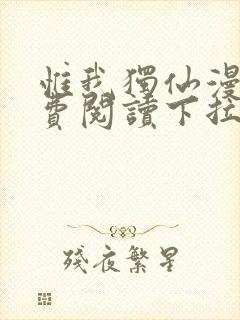 惟我獨仙漫
費閱讀下拉
殘夜繁星